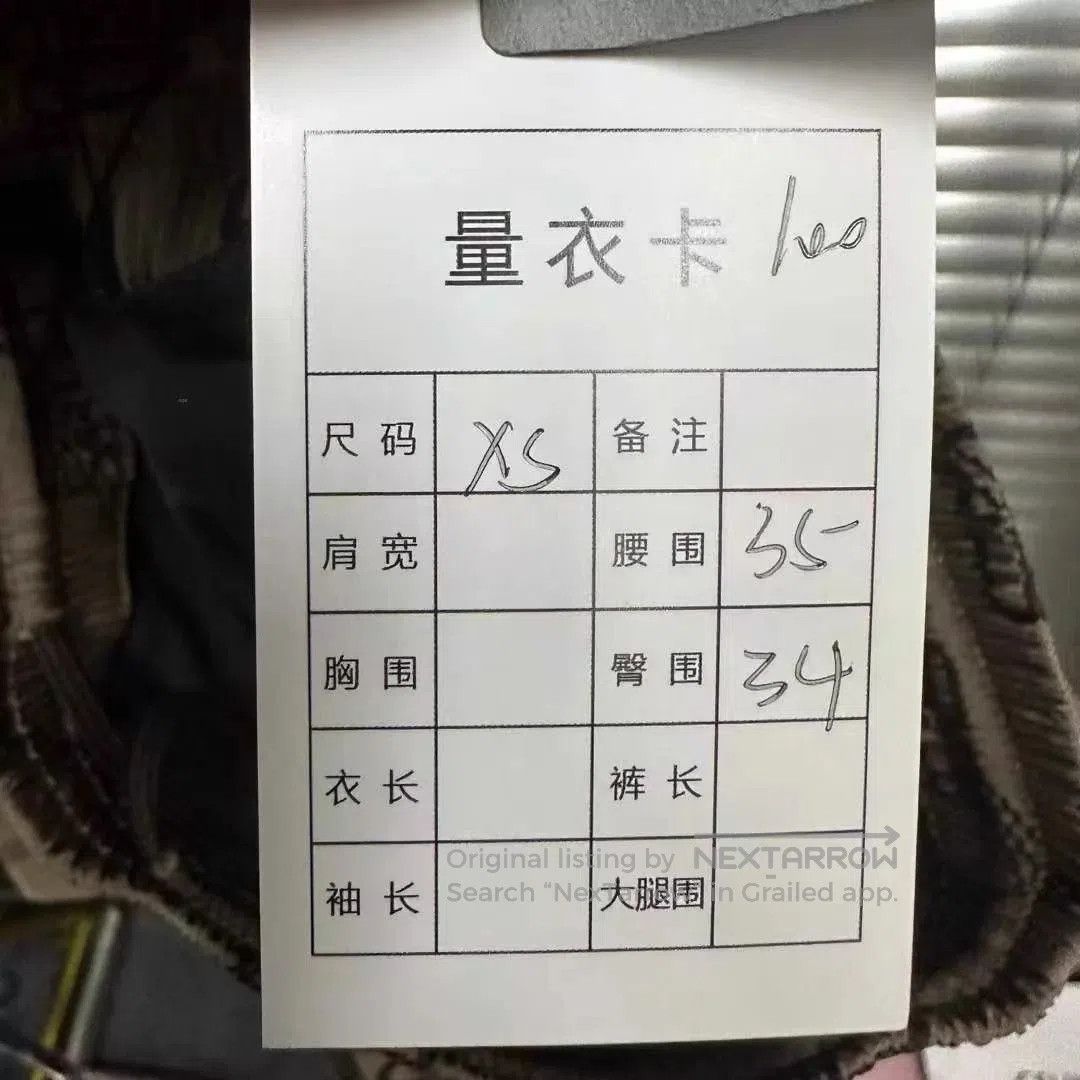 量衣卡 100
尺码 XS 备注
肩宽 腰围 35
胸围 臀围 34
衣长 裤长
Original listing by NEXTARROW
Search "NexTarrow" in Grailed app.
袖长 大腿围